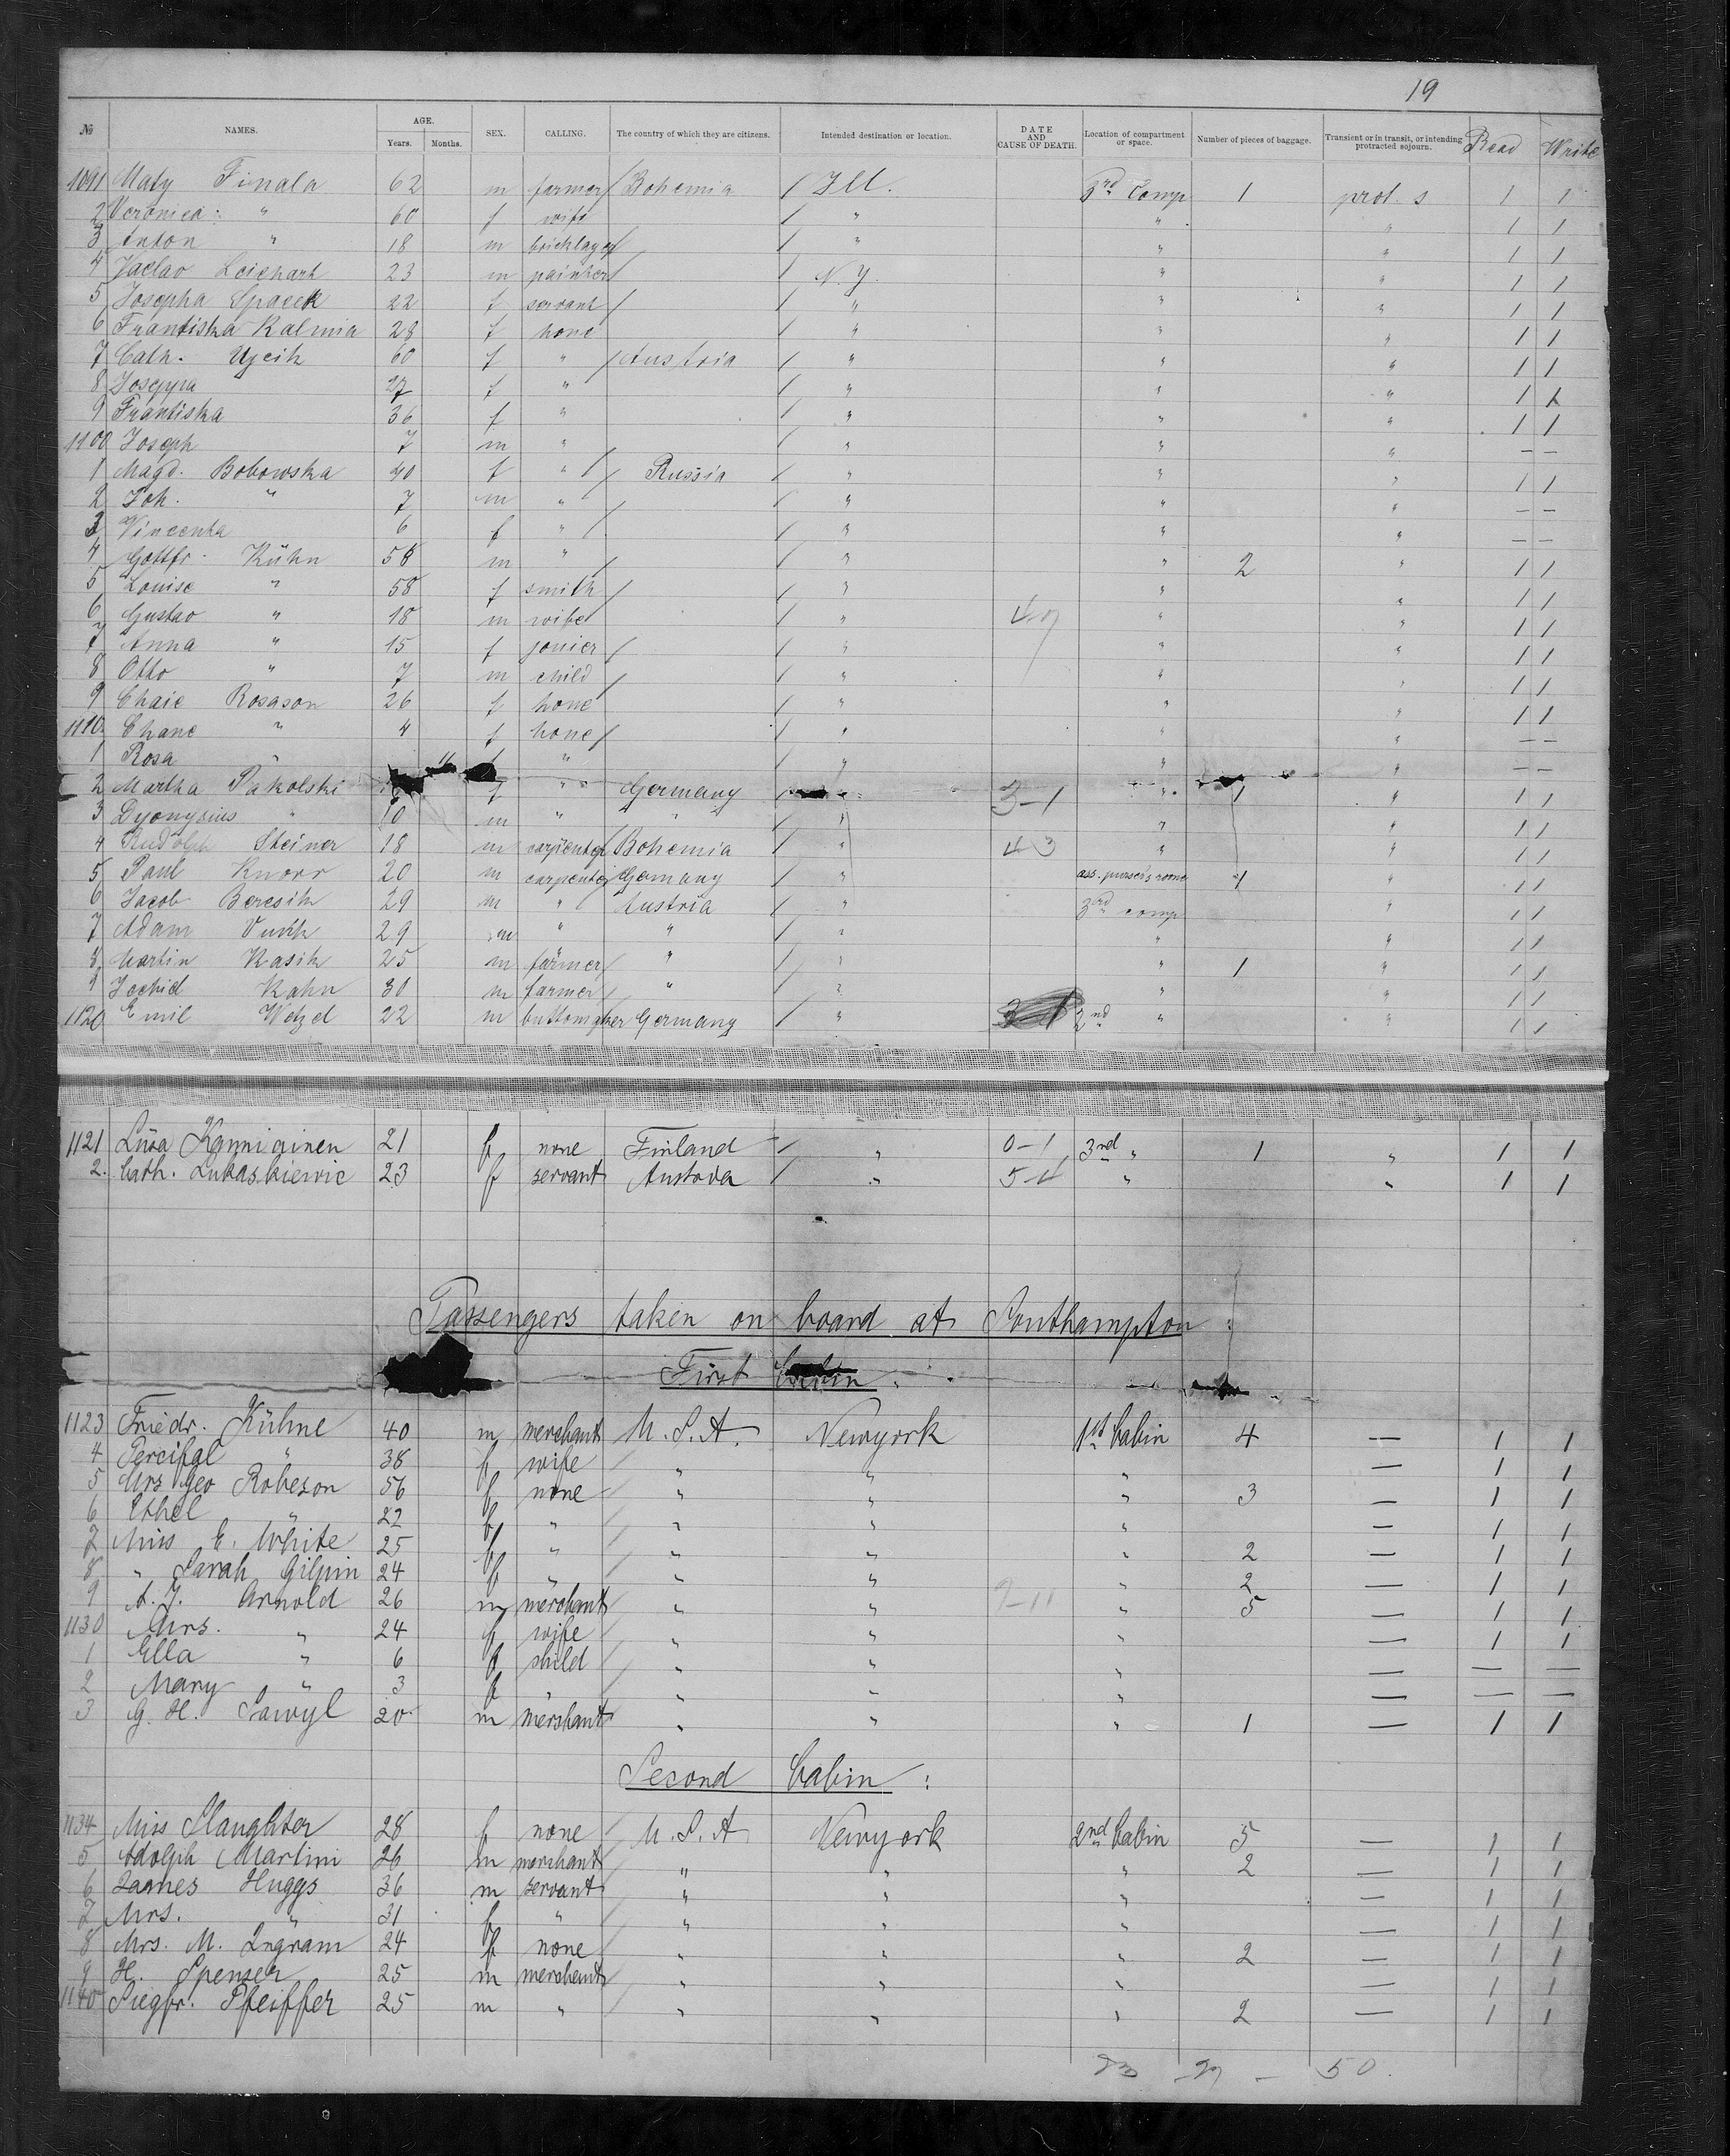 19
№ NAMES. AGE. Years. Months. SEX. CALLING. The country of which they are citizens. Intended destination or location. DATE AND CAUSE OF DEATH. Location of compartment or space. Number of pieces of baggage. Transient or in transit, or intending protracted sojourn. Read Write
1091 Maty Finala 62 m farmer / Bohemia / Ill. 3rd Comp 1 prot. s 1 1
2 Veronica: " 60 f wife / " " " 1 1
3 Anton " 18 m bricklayer / / " " " 1 1
4 Leichart 23 m painter / / N.Y. " " 1 1
5 Josepha Spacek 22 f servant / / " " " 1 1
6 Frantiska Kalmia 28 f none / " " " 1 1
7 Cath. Ujcik 60 f " / Austria / " " " 1 1
8 27 f " / " " " 1 1
9 Frantiska 36 f " / " " " 1 1
1100 Joseph 7 m " / " " " – –
1 Magd. Bobowska 40 f " / / Russia / " " " 1 1
2 Joh. " 7 m " / / " " " – –
3 Vincenta 6 f " / / " " " – –
4 Gottfr. Kühn 58 m " / / " " 2 " 1 1
5 Louise " 58 f smith / / " " " 1 1
6 Gustav " 18 m wife / " " " 1 1
7 Anna " 15 f jonier / / " " " 1 1
8 Otto " 7 m child / / " " " 1 1
9 Chaie Rosason 26 f none / " " " 1 1
1110 Chane " 4 f none / / " " " – –
1 Rosa " 11 f " / " " " – –
2 Martha Pakolski f " Germany 3-1 " 1 " 1 1
3 Dyonysius " 10 m " " / " " " 1 1
4 Rudolph Steiner 18 m carpenter / Bohemia / " 43 " " 1 1
5 Paul Knorr 20 m carpenter Germany / " ass. purser's room 1 " 1 1
6 Jacob Beresik 29 m " Austria / " 3rd comp " 1 1
7 Adam 29 m " " / " " " 1 1
8 Martin Kasik 25 m farmer / " / " " 1 " 1 1
9 Kahn 30 m farmer / " / " " " 1 1
1120 Emil Wetzel 22 m Germany / " 2nd " " 1 1
1121 Kanniainen 21 f none Finland / " 0-1 3rd " 1 " 1 1
2. Cath. Lukaskiewic 23 f servant Austria / " 5-4 " " 1 1
Passengers taken on board at Southampton:
First Cabin.
1123 Friedr. Kühne 40 m merchant U.S.A. Newyork 1st Cabin 4 — 1 1
4 Percifal " 38 f wife / " " " — 1 1
5 Mrs Geo Robeson 56 f none / " " " 3 — 1 1
6 Ethel " 22 f " / " " " — 1 1
7 Miss E. White 25 f " / " " " 2 — 1 1
8 " Sarah Gilpin 24 f " / " " " 2 — 1 1
9 A.J. Arnold 26 m merchant / " " 9-11 " 5 — 1 1
1130 Mrs. " 24 f wife / " " " — 1 1
1 Ella " 6 f child / " " " — — —
2 Mary " 3 f " / " " " — — —
3 G. H. Sawyl 20 m merchant " " " 1 — 1 1
Second Cabin:
1134 Miss Slaughter 28 f none / U.S.A Newyork 2nd Cabin 5 — 1 1
5 Adolph Martini 26 m merchant " " " 2 — 1 1
6 James Huggs 36 m servant " " " — 1 1
7 Mrs. " 31 f " / " " " — 1 1
8 Mrs. M. Ingram 24 f none / " " " 2 — 1 1
9 H. Spenser 25 m merchant " " " — 1 1
1140 Siegfr. Pfeiffer 25 m " / " " " 2 — 1 1
23 – 27 – 50.